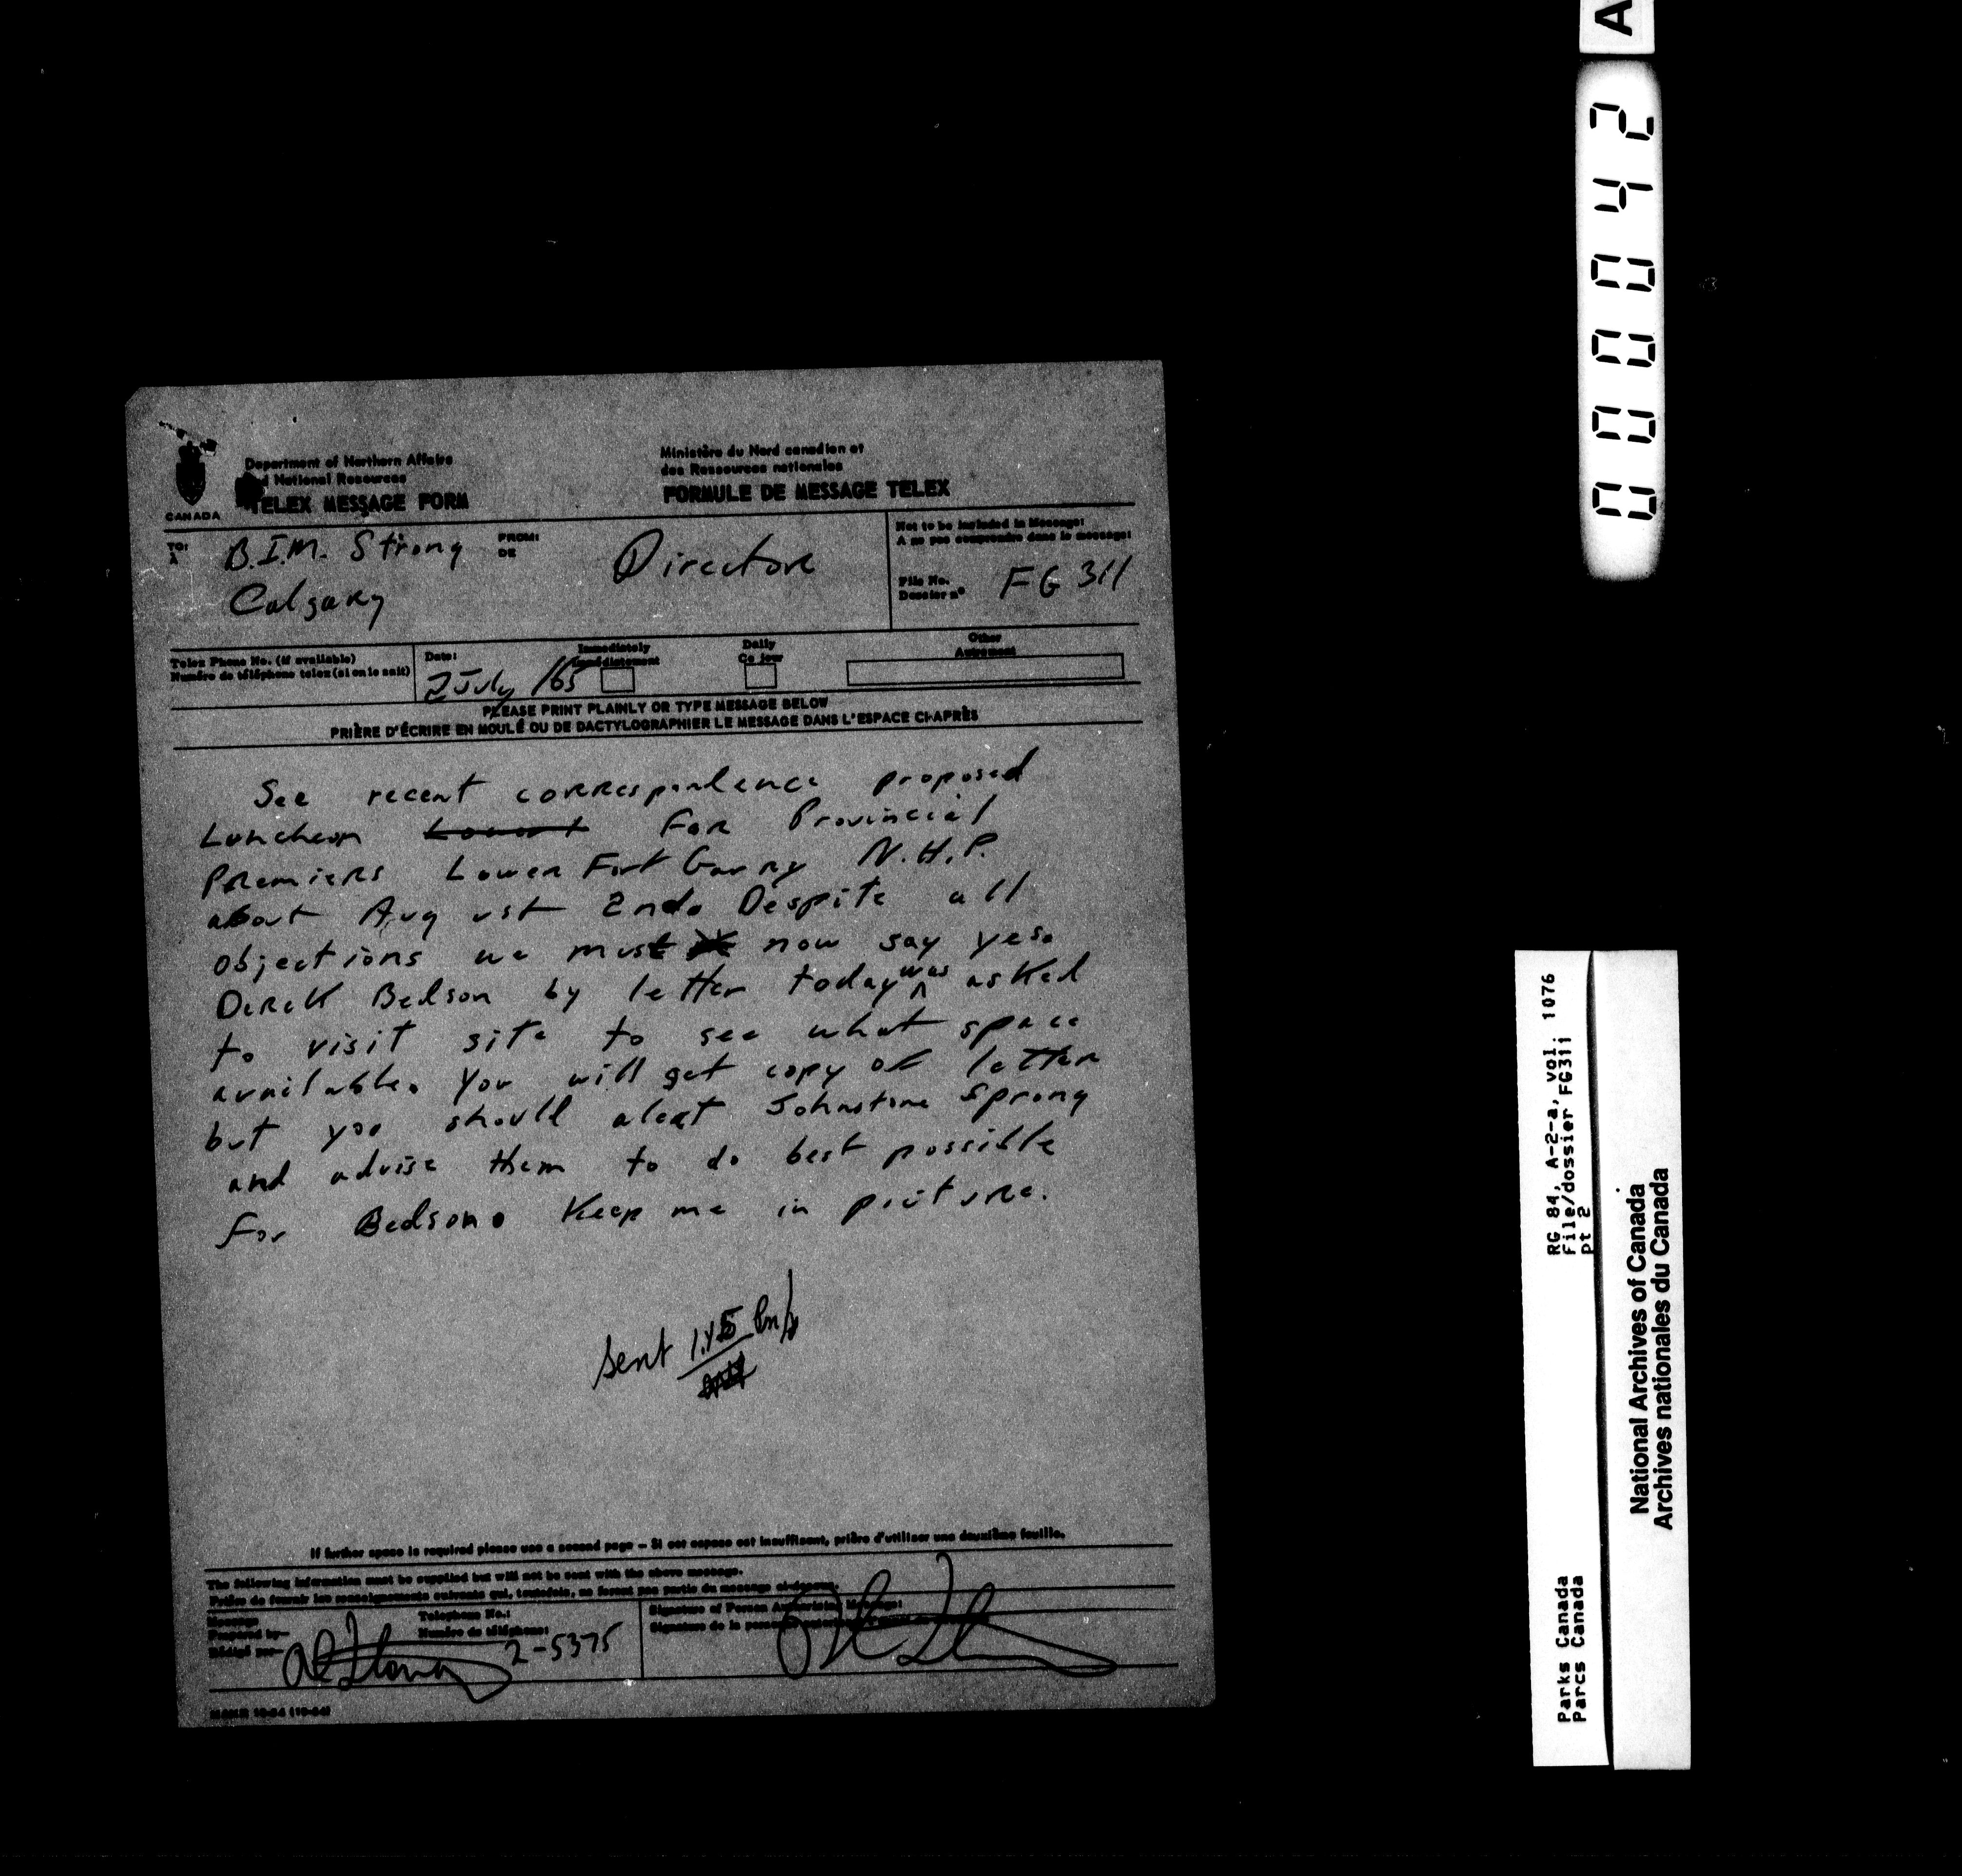 Department of Northern Affairs
National Resources
TELEX MESSAGE FORM
CANADA
Ministère du Nord canadien et
des Ressources nationales
FORMULE DE MESSAGE TELEX
TO:
A
B.I.M. Strong
Calgary
FROM:
DE
Director
Not to be included in Message:
A ne pas comprendre dans le message:
File No.
Dossier nº
FG 311
Telex Phone No. (if available)
Numéro de téléphone telex (si on le sait)
Date:
2 July /65
Immediately
Immédiatement
Daily
Ce jour
Other
Autrement
PLEASE PRINT PLAINLY OR TYPE MESSAGE BELOW
PRIÈRE D'ÉCRIRE EN MOULÉ OU DE DACTYLOGRAPHIER LE MESSAGE DANS L'ESPACE CI-APRÈS
See recent correspondence proposed
Luncheon For Provincial
Premiers Lower Fort Garry N.H.P.
about August 2nd. Despite all
objections we must now say yes.
Derek Bedson by letter today was asked
to visit site to see what space
available. You will get copy of letter
but you should alert Johnstone Sprong
and advise them to do best possible
for Bedson. Keep me in picture.
Sent 1.45 Pm
If further space is required please use a second page – Si cet espace est insuffisant, prière d'utiliser une deuxième feuille.
The following information must be supplied but will not be sent with the above message.
Prière de fournir les renseignements suivants qui, toutefois, ne feront pas partie du message ci-dessus.
Message
Prepared by—
Rédigé par—
Telephone No.:
Numéro de téléphone:
2-5375
Signature of Person Authorizing Message:
Signature de la personne
000042
A
RG 84, A-2-a, vol. 1076
File/dossier FG311
pt 2
Parks Canada
Parcs Canada
National Archives of Canada
Archives nationales du Canada